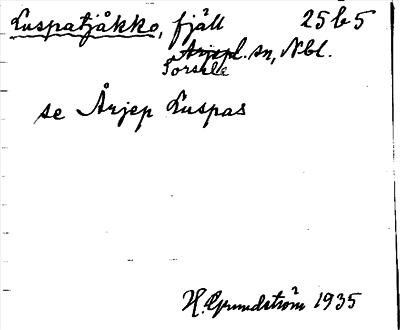 Luspatjåkko, fjäll 25b5
Arjepl. sn, Nbl.
Sorsele
se Årjep Luspas
H. Grundström 1935